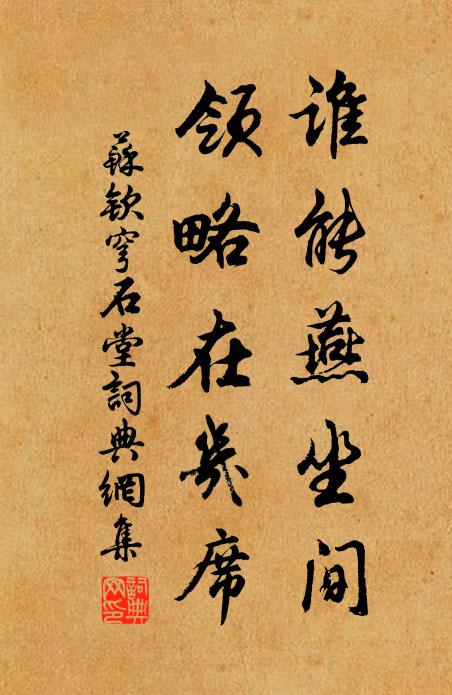 谁能燕坐间
领略在幾席
蘇欽穹石堂詞典網集
詞典网印